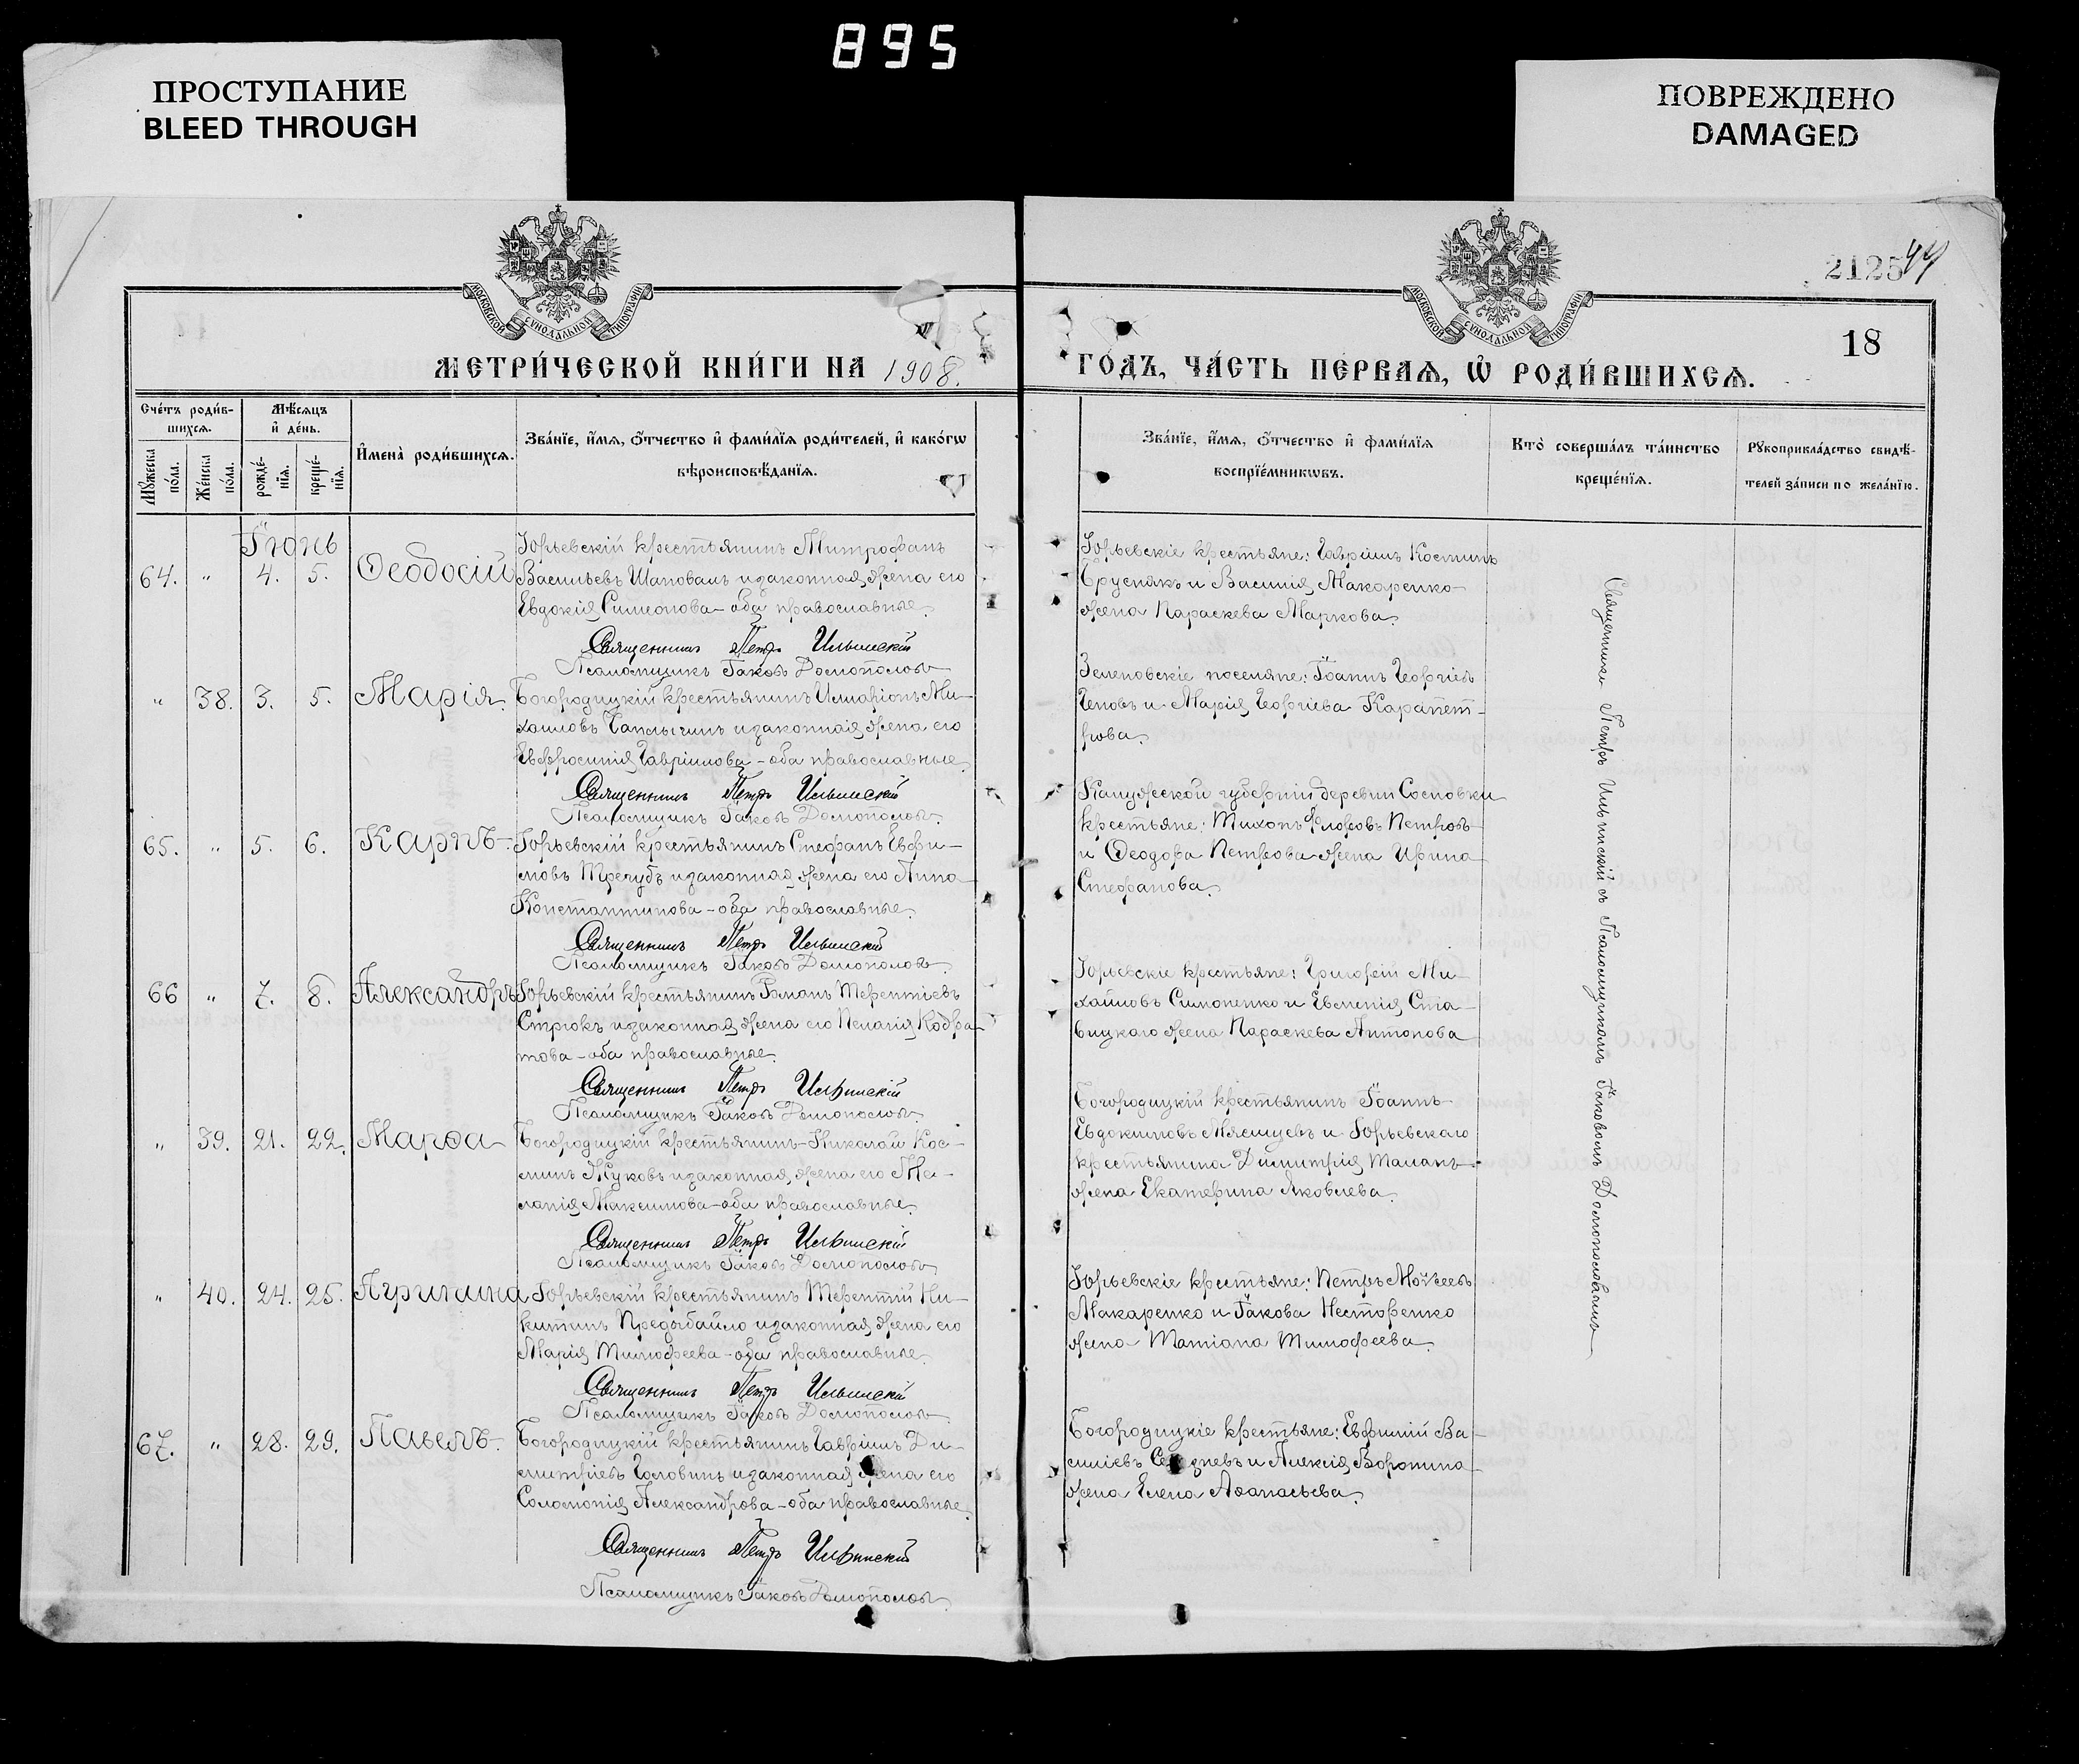 895
ПРОСТУПАНИЕ
BLEED THROUGH
ПОВРЕЖДЕНО
DAMAGED
212544
18
МОСКОВСКОЙ СѴНОДАЛЬНОЙ ТИПОГРАФІИ
МОСКОВСКОЙ СѴНОДАЛЬНОЙ ТИПОГРАФІИ
МЕТРИ́ЧЕСКОЙ КНИ́ГИ НА 1908.
ГО́ДЪ, ЧА́СТЬ ПЕ́РВАѦ, Ѡ҆ РОДИ́ВШИХСѦ.
Сче́тъ роди́в-
шихсѧ.
Мѣ́сѧцъ
и҆ де́нь.
Мꙋ́жеска по́ла.
Же́нска по́ла.
рожде́-
нїѧ.
креще́-
нїѧ.
И҆мена̀ роди́вшихсѧ.
Зва́нїе, и҆́мѧ, ѻ҆́тчество и҆ фами́лїѧ роди́телей, и҆ како́гѡ
вѣроисповѣ́данїѧ.
Зва́нїе, и҆́мѧ, ѻ҆́тчество и҆ фами́лїѧ
воспрїе́мникѡвъ.
Кто̀ соверша́лъ та́инство
креще́нїѧ.
Рꙋкоприкла́дство свидѣ́-
телей за́писи по жела́нїю.
Іюнь
64. " 4. 5. Ѳеодосій
Юрьевскій крестьянинъ Митрофанъ
Васильевъ Шаповалъ и законная жена его
Евдокія Симеонова - оба православные.
Священникъ Петръ Ильинскій
Псаломщикъ Іаковъ Домополовъ
Юрьевскіе крестьяне: Гавріилъ Костинъ
Бруснякъ и Василія Макаренко
жена Параскева Маркова.
" 38. 3. 5. Марія.
Богородицкій крестьянинъ Иларіонъ Ми-
хаиловъ Чаплыгинъ и законная жена его
Евфросинія Гавріилова - оба православные.
Священникъ Петръ Ильинскій
Псаломщикъ Іаковъ Домополовъ.
Зеленовскіе поселяне: Іоаннъ Георгіевъ
Чековъ и Марія Георгіева Карапет-
рова.
65. " 5. 6. Карпъ.
Юрьевскій крестьянинъ Стефанъ Евфи-
мовъ Трегубъ и законная жена его Анна
Константинова - оба православные.
Священникъ Петръ Ильинскій
Псаломщикъ Іаковъ Домополовъ.
Калужеской губерніи деревни Сосновки
крестьяне: Тихонъ Флоровъ Петровъ
и Ѳеодора Петрова жена Ирина
Стефанова.
66 " 7. 8. Александръ
Юрьевскій крестьянинъ Романъ Терентіевъ
Стрюкъ и законная жена его Пелагія Кодра-
това - оба православные.
Священникъ Петръ Ильинскій
Псаломщикъ Іаковъ Домополовъ.
Юрьевскіе крестьяне: Григорій Ми-
хайловъ Симоненко и Евменія Ста-
вицкаго жена Параскева Антонова
" 39. 21. 22. Марѳа
Богородицкій крестьянинъ Николай Кос-
минъ Жуковъ и законная жена его Ме-
ланія Максимова - оба православные.
Священникъ Петръ Ильинскій
Псаломщикъ Іаковъ Домополовъ.
Богородицкій крестьянинъ Іоаннъ
Евдокимовъ Мясищевъ и Юрьевскаго
крестьянина Димитрія Таланъ
жена Екатерина Яковлева.
" 40. 24. 25. Агрипина
Юрьевскій крестьянинъ Терентій Ни-
китинъ Предыбайло и законная жена его
Марія Тимофеева - оба православные.
Священникъ Петръ Ильинскій
Псаломщикъ Іаковъ Домополовъ
Юрьевскіе крестьяне: Петръ Моѵсеевъ
Макаренко и Іакова Несторенко
жена Татіана Тимофеева.
67. " 28. 29. Павелъ.
Богородицкій крестьянинъ Гавріилъ Ди-
митріевъ Головинъ и законная жена его
Соломонія Александрова - оба православные.
Священникъ Петръ Ильинскій
Псаломщикъ Іаковъ Домополовъ.
Богородицкіе крестьяне: Евфимій Ва-
силіевъ и Алексія Воронина
жена Елена Аѳанасьева.
Священникъ Петръ Ильинскій съ Псаломщикомъ Іаковомъ Домополовымъ